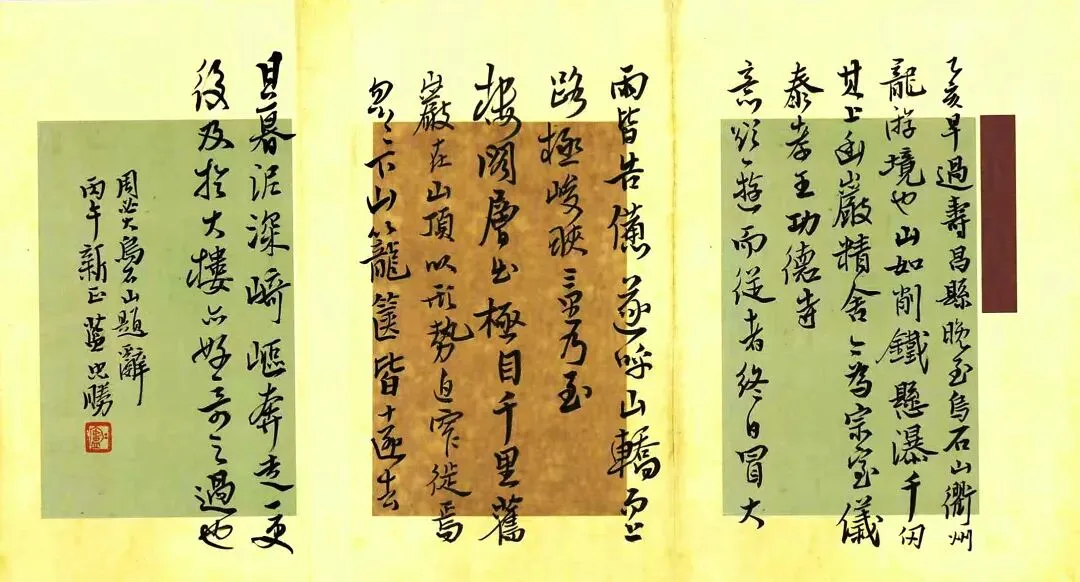 乙亥早過壽昌縣晚至烏石山衢州
龍游境也山如削鐵懸瀑千仞
其上幽巖精舍今為宗室儀
泰孝王功德寺
意欲一遊而從者終日冒大
雨皆告憊遂呼山轎而上
路極峻昳三宿乃至
樓閣層出極目千里舊
巖在山頂以形勢迫窄徙焉
忽忽下山籠篋皆十遂去
旦暮泥深崎嶇奔走更
後及於大樓亦好奇之過也
周必大烏石山題辭
丙午新正藍忠勝